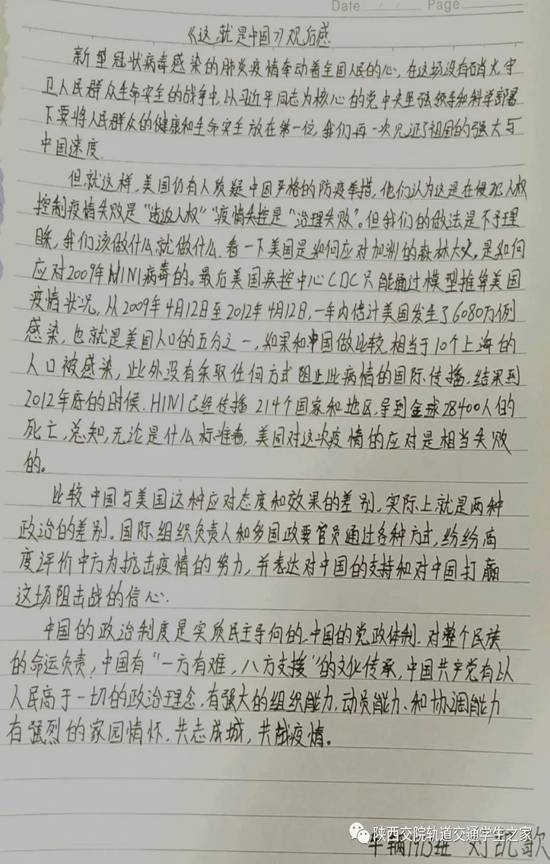 Date Page
《这就是中国》观后感
新型冠状病毒感染的肺炎疫情牵动着全国人民的心，在这场没有硝火，守
卫人民群众生命安全的战争中，以习近平同志为核心的党中央坚强领导和科学部署
下要将人民群众的健康和生命安全放在第一位，我们再一次见证了祖国的强大与
中国速度．
但就这样，美国仍有人质疑中国严格的防疫举措，他们认为这是在侵犯人权
控制疫情失败是“违返人权”“疫情失控是“治理失败”。但我们的做法是不予理
睬，我们该做什么就做什么．看一下美国是如何应对加洲的森林大火．是如何
应对2009年H1N1病毒的。最后美国疾控中心CDC只能通过模型推算美国
疫情状况，从2009年4月12日至2012年4月12日，一年内估计美国发生了6080万例
感染，也就是美国人口的五分之一，如果和中国做比较，相当于10个上海的
人口被感染，此外没有采取任何方式阻止此病情的国际传播．结果到
2012年底的时候．H1N1已经传播214个国家和地区，导到全球28400人的
死亡，总知，无论是什么标准看，美国对这次疫情的应对是相当失败
的。
比较中国与美国这种应对态度和效果的差别，实际上就是两种
政治的差别。国际组织负责人和多国政要官员通过各种方式，纷纷高
度评价中方为抗击疫情的努力，并表达对中国的支持和对中国打赢
这场阻击战的信心．
中国的政治制度是实质民主导向的，中国的党政体制．对整个民族
的命运负责，中国有“一方有难，八方支援”的文化传承，中国共产党有以
人民高于一切的政治理念，有强大的组织能力，动员能力、和协调能力
有强烈的家园情怀．共志成城，共越疫情。
车辆1913班 刘凯歌
陕西交院轨道交通学生之家